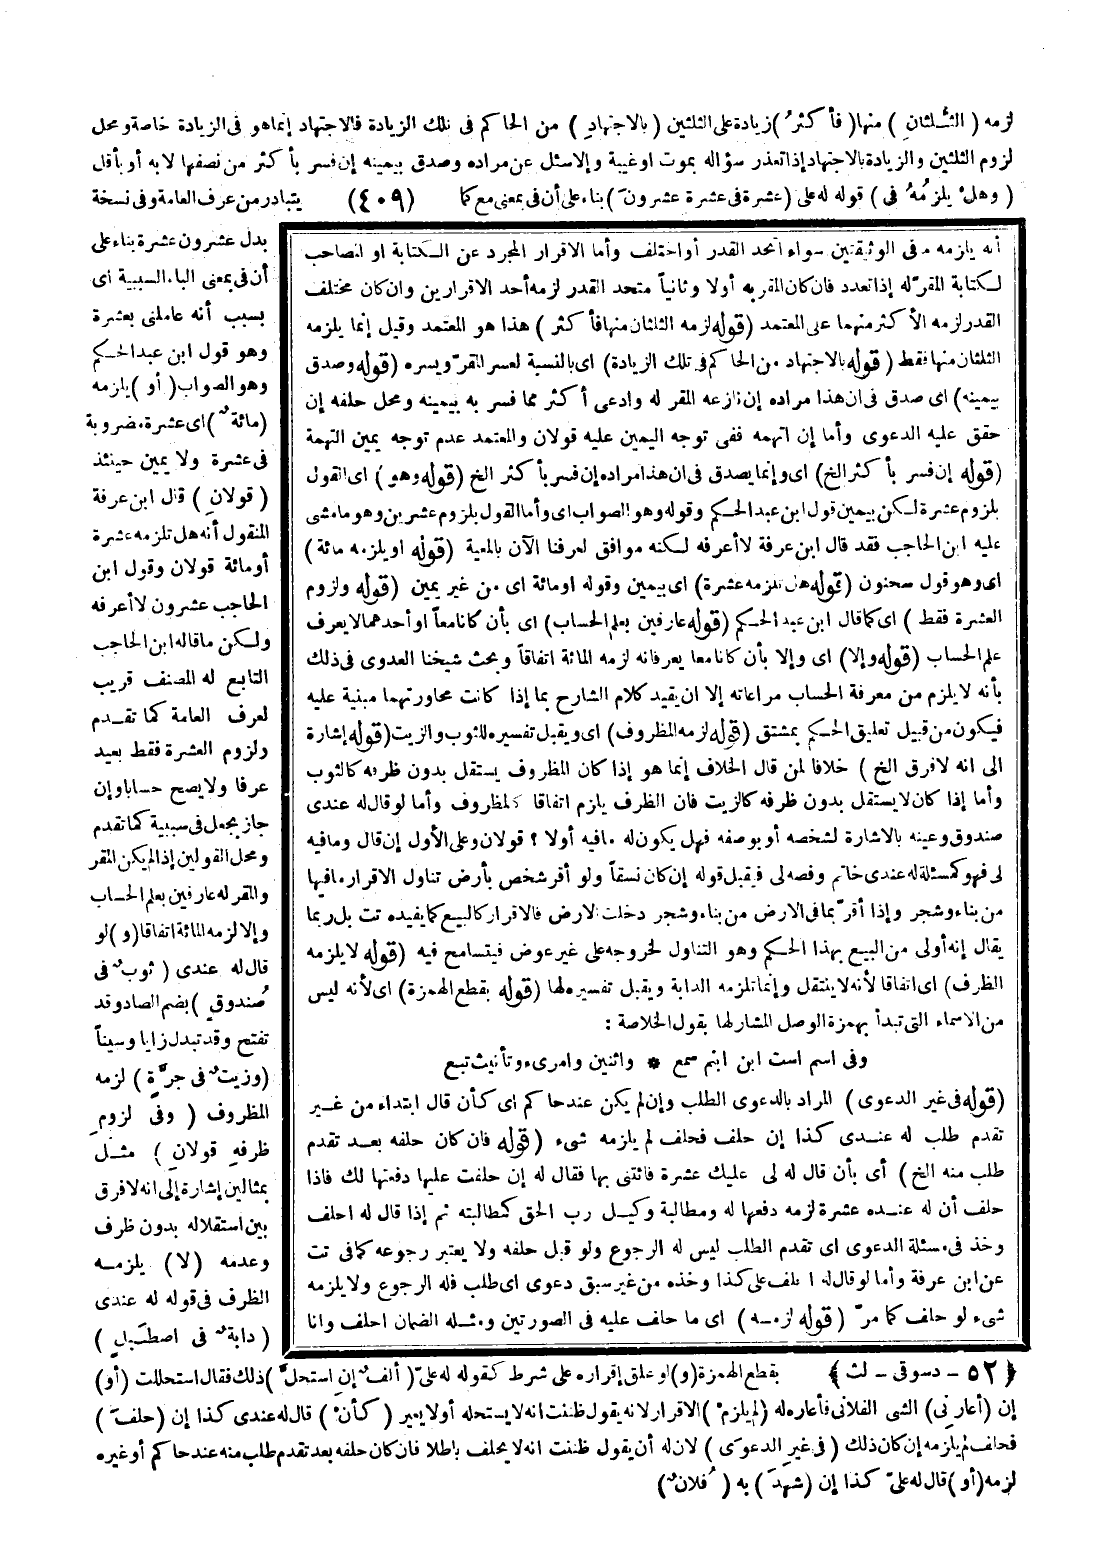 لزمه ( الثلثان ) منها ( فأكثر ) زيادة على الثلثين ( بالاجتهاد ) من الحاكم فى تلك الزيادة فالاجتهاد إنما هو فى الزيادة خاصة ومحل
لزوم الثلثين والزيادة بالاجتهاد إذا تعذر سؤاله بموت اوغيبة وإلا سئل عن مراده وصدق بيمينه إن فسر بأكثر من نصفها لا به أو بأقل
( وهل يلزمُهُ فى ) قوله له على ( عشرة فى عشرة عشرون ) بناء على أن فى بمعنى مع كما (٤٠٩) يتبادر من عرف العامة وفى نسخة
بدل عشرون عشرة بناء على
أن فى بمعنى الباء السببية اى
بسبب أنه عاملنى بعشرة
وهو قول ابن عبد الحكم
وهو الصواب ( أو ) يلزمه
( مائة ) اى عشرة مضروبة
فى عشرة ولا يمين حينئذ
( قولان ) قال ابن عرفة
المنقول أنه هل تلزمه عشرة
أو مائة قولان وقول ابن
الحاجب عشرون لا أعرفه
ولكن ما قاله ابن الحاجب
التابع له المصنف قريب
لعرف العامة كما تقدم
ولزوم العشرة فقط بعيد
عرفا ولا يصح حسابا وإن
جاز بجعل فى سببية كما تقدم
ومحل القولين إذا لم يكن المقر
والمقر له عارفين بعلم الحساب
وإلا لزمه المائة اتفاقا ( و ) لو
قال له عندى ( ثوب فى
صُندوق ) بضم الصاد وقد
تفتح وقد تبدل زايا وسيناً
( وزيت فى جرَّة ) لزمه
المظروف ( وفى لزوم
ظرفهِ قولانِ ) مثل
بمثالين إشارة إلى انه لا فرق
بين استقلاله بدون ظرف
وعدمه ( لا ) يلزمه
الظرف فى قوله له عندى
( دابة فى اصطبل )
أنه يلزمه مافى الوثيقتين سواء اتحد القدر أو اختلف وأما الاقرار المجرد عن الكتابة او المصاحب
لكتابة المقر له إذا تعدد فان كان المقر به أولا وثانياً متحد القدر لزمه أحد الاقرارين وان كان مختلف
القدر لزمه الأكثر منهما على المعتمد (قوله لزمه الثلثان منها فأكثر ) هذا هو المعتمد وقيل إنما يلزمه
الثلثان منها فقط ( قوله بالاجتهاد من الحاكم فى تلك الزيادة) اى بالنسبة لعسر المقر ويسره (قوله وصدق
بيمينه) اى صدق فى ان هذا مراده إن نازعه المقر له وادعى أكثر مما فسر به بيمينه ومحل حلفه إن
حقق عليه الدعوى وأما إن اتهمه ففى توجه اليمين عليه قولان والمعتمد عدم توجه يمين التهمة
(قوله إن فسر بأكثر الخ) اى وإنما يصدق فى ان هذا مراده إن فسر بأكثر الخ (قوله وهو ) اى القول
بلزوم عشرة لكن بيمين قول ابن عبد الحكم وقوله وهو الصواب اى وأما القول بلزوم عشرين وهو ما مشى
عليه ابن الحاجب فقد قال ابن عرفة لا أعرفه لكنه موافق لعرفنا الآن بالمعية (قوله او يلزمه مائة )
اى وهو قول سحنون (قوله هل تلزمه عشرة) اى بيمين وقوله او مائة اى من غير يمين (قوله ولزوم
العشرة فقط ) اى كما قال ابن عبد الحكم (قوله عارفين بعلم الحساب) اى بأن كانا معاً او أحدهما لا يعرف
علم الحساب (قوله وإلا) اى وإلا بأن كانا معا يعرفانه لزمه المائة اتفاقاً وبحث شيخنا العدوى فى ذلك
بأنه لا يلزم من معرفة الحساب مراعاته إلا ان يقيد كلام الشارح بما إذا كانت محاورتهما مبنية عليه
فيكون من قبيل تعليق الحكم بمشتق (قوله لزمه المظروف) اى ويقبل تفسيره للثوب والزيت (قوله إشارة
الى انه لا فرق الخ ) خلافا لمن قال الخلاف إنما هو إذا كان المظروف يستقل بدون ظرفه كالثوب
وأما إذا كان لا يستقل بدون ظرفه كالزيت فان الظرف يلزم اتفاقا كالمظروف وأما لو قال له عندى
صندوق وعينه بالاشارة لشخصه أو بوصفه فهل يكون له مافيه أولا ؟ قولان وعلى الأول إن قال ومافيه
لى فهو كمسئلة له عندى خاتم وفصه لى فيقبل قوله إن كان نسقاً ولو أقر شخص بأرض تناول الاقرار مافيها
من بناء وشجر وإذا أقر بما فى الارض من بناء وشجر دخلت الارض فالاقرار كالبيع كما يفيده تت بل ربما
يقال إنه أولى من البيع بهذا الحكم وهو التناول لخروجه على غير عوض فيتسامح فيه (قوله لا يلزمه
الظرف) اى اتفاقا لأنه لا ينتقل وإنما تلزمه الدابة ويقبل تفسيره لها (قوله بقطع الهمزة) اى لأنه ليس
من الاسماء التى تبدأ بهمزة الوصل المشار لها بقول الخلاصة :
وفى اسم است ابن ابنم سمع * واثنين وامرىء وتأنيث تبع
(قوله فى غير الدعوى) المراد بالدعوى الطلب وإن لم يكن عند حاكم اى كأن قال ابتداء من غير
تقدم طلب له عندى كذا إن حلف فحلف لم يلزمه شىء (قوله فان كان حلفه بعد تقدم
طلب منه الخ) أى بأن قال له لى عليك عشرة فائتنى بها فقال له إن حلفت عليها دفعتها لك فاذا
حلف أن له عنده عشرة لزمه دفعها له ومطالبة وكيل رب الحق كمطالبته ثم إذا قال له احلف
وخذ فى مسئلة الدعوى اى تقدم الطلب ليس له الرجوع ولو قبل حلفه ولا يعتبر رجوعه كما فى تت
عن ابن عرفة وأما لو قال له احلف على كذا وخذه من غير سبق دعوى اى طلب فله الرجوع ولا يلزمه
شىء لو حلف كما مرّ ( قوله لزمه ) اى ما حلف عليه فى الصورتين ومثله الضمان احلف وانا
﴿ ٥٢ - دسوقى - لث ﴾ بقطع الهمزة (و) لو علق إقراره على شرط كقوله له علىّ ( ألف إن استحل ) ذلك فقال استحللت (أو)
إن (أعارنى) الشى الفلانى فأعاره له (لم يلزم ) الاقرار لانه يقول ظننت انه لا يستحله أولا يعير ( كأن ) قال له عندى كذا إن (حلف )
فحلف لم يلزمه إن كان ذلك ( فى غير الدعوى ) لان له أن يقول ظننت انه لا يحلف باطلا فان كان حلفه بعد تقدم طلب منه عند حاكم أو غيره
لزمه ( أو ) قال له علىّ كذا إن ( شهد ) به ( فلان )